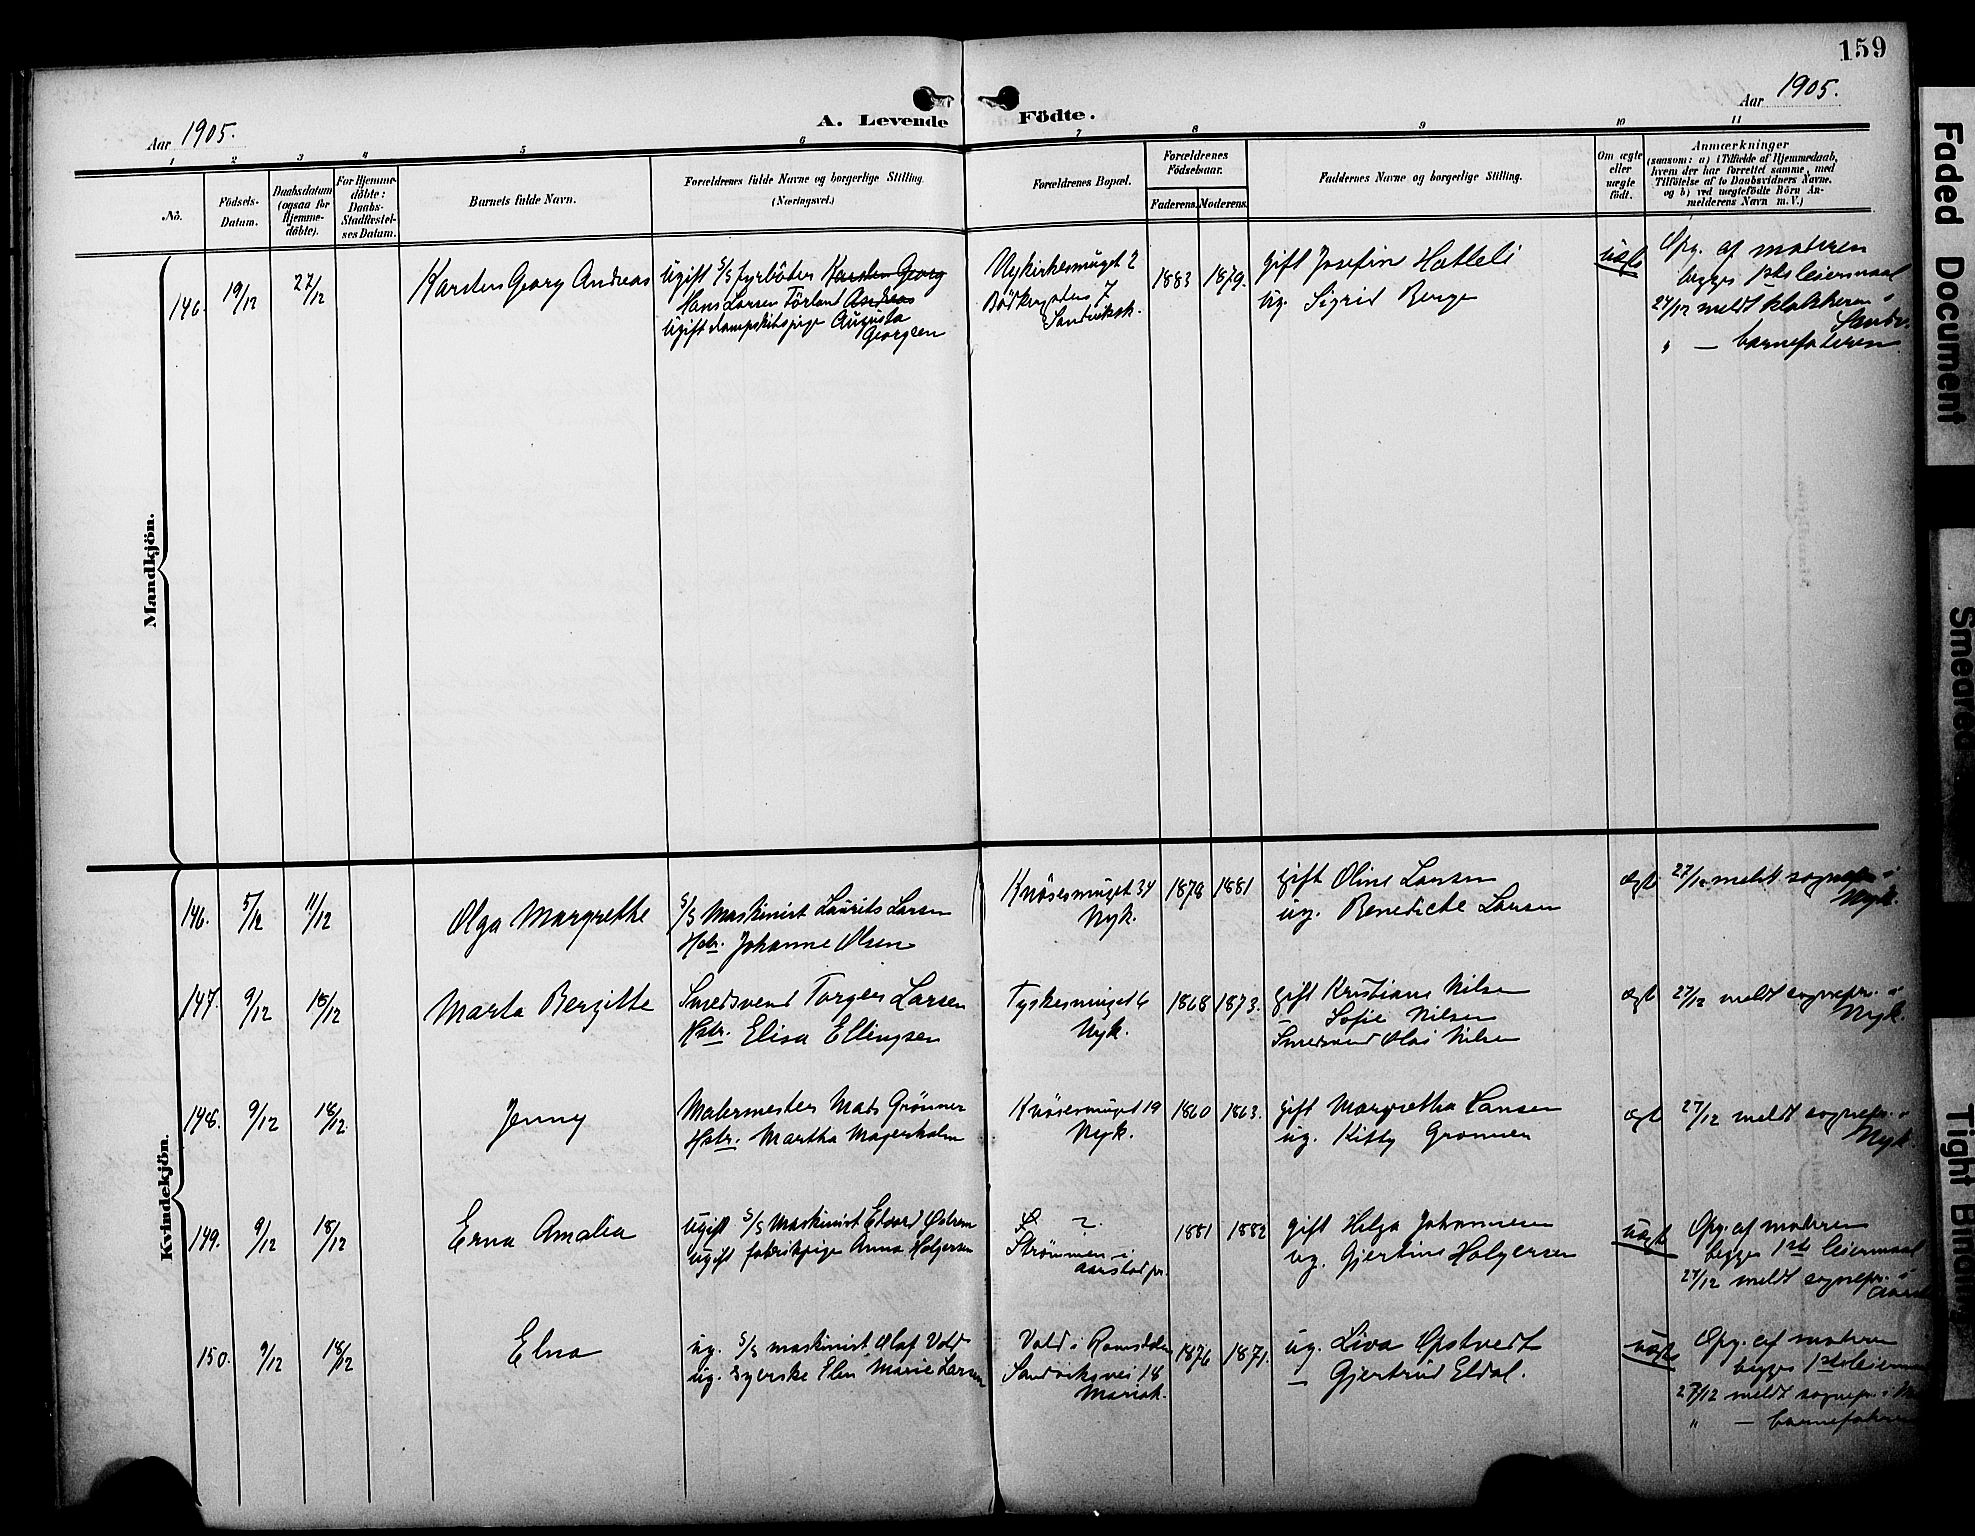 159
Aar 1905.
Aar 1905.
A. Levende Födte.
1 2 3 4 5 6 7 8 9 10 11
No.
Födsels-Datum.
Daabsdatum (ogsaa for Hjemme-döbte).
For Hjemme-döbte: Daabs-Stadfæstel-ses Datum.
Barnets fulde Navn.
Forældrenes fulde Navne og borgerlige Stilling. (Næringsvei.)
Forældrenes Bopæl.
Forældrenes Födselsaar.
Faderens. Moderens.
Faddernes Navne og borgerlige Stilling.
Om ægte eller uægte födt.
Anmærkninger
(saasom: a) i Tilfælde af Hjemmedaab,
hvem der har forrettet samme, med
Tilföielse af to Daabsvidners Navne.
og b) ved uægtefödte Börn An-
melderens Navn m. V.)
Mandkjön.
146. 19/12 27/12
Karsten Georg Andreas
Ugift S/S fyrböter Karsten Georg
Hans Larsen Förland Andreas
Ugift dampskibspige Augusta
Georgsen
Nykirkesmuget 2
Bödkergaden 7
Sandviksk.
1883 1879.
gift Josefine Hatleli
ug. Sigrid Berge
uægte
Opg. af moderen
begges 1ste leiermaal
27/12 meldt klokkeren i
Sandv.
" — barnefaderen
Kvindekjön.
146. 5/12 11/12
Olga Margrethe
S/S Maskinist Laurits Larsen
Hstr. Johanne Olsen
Knösesmuget 34
Nyk.
1878 1881
gift Oline Larsen
ug. Benedicte Larsen
ægte
27/12 meldt sognepr. i
Nyk.
147. 9/12 18/12
Marta Bergitte
Smedsvend Torger Larsen
Hstr. Elisa Ellingsen
Tyskesmuget 6
Nyk.
1868 1873.
gift Kristiane Nilsen
Sofie Nilsen
Smedsvend Olai Nilsen
ægte
27/12 meldt sognepr. i
Nyk.
148. 9/12 18/12
Jenny
Malermester Mads Grönner
Hstr. Martha Magerholm
Knösesmuget 19
Nyk.
1860 1863.
gift Margretha Hansen
ug. Kitty Grønner
ægte
27/12 meldt sognepr. i
Nyk
149. 9/12 18/12
Erna Amalia
Ugift S/S Maskinist Edvard
ugift fabrikpige Anna Holgersen
?
Strömmen i
Aarstad pr.
1881 1882
gift Helga Johannesen
ug. Gjertine Holgersen
uægte
Opg. af moderen
begges 1ste leiermaal
27/12 meldt sognepr. i
150. 9/12 18/12
Elna
ug. S/S maskinist Olaf Vold
ug. Syerske Elen Marie Larsen
Vold i Romsdalen
Sandviksvei 18
Mariak.
1876 1871.
ug. Liva Opstvedt
— Gjertrud Eldal.
uægte
Opg. af moderen
begges 1ste
27/12 meldt sognepr. i
" — barnefaderen
Faded Document
Smeared
Tight Binding